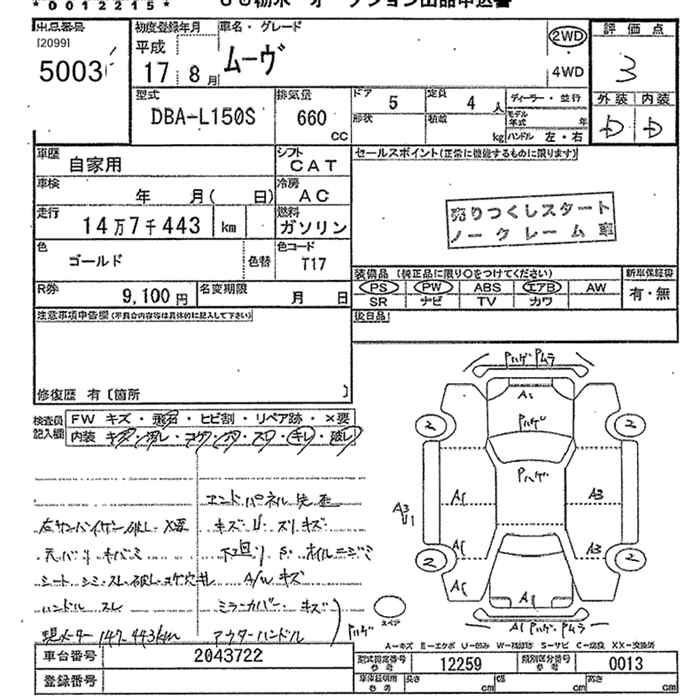 *0012215*
オークション出品申込書
出品番号 [2099] 5003
初度登録年月 平成 17 8月
車名・グレード ムーヴ
2WD
4WD
評価点 3
外装 D 内装 D
型式 DBA-L150S
排気量 660 CC
ドア 5 定員 4 人
形状 積載 kg
ディーラー・並行
モデル年式 年
ハンドル 左・右
車歴 自家用
シフト CAT
車検 年 月( 日)
冷房 AC
走行 14万7千443 km
燃料 ガソリン
色 ゴールド 色替
色コード T17
R券 9,100円
名変期限 月 日
セールスポイント(正常に機能するものに限ります)
売りつくしスタート
ノークレーム車
装備品 (純正品に限り○をつけてください)
新車保証書 有・無
PS PW ABS エアB AW
SR ナビ TV カワ
後日品
注意事項申告欄(不具合内容等は具体的に記入して下さい)
修復歴 有〔箇所 〕
検査員記入欄
FW キズ・飛石・ヒビ割・リペア跡・×要
内装 キズ・汚レ・コゲ・穴・スレ・キレ・破レ
エンドパネル
左サンバイザー破レ X要 キズU スリキズ
天バリ キバミ 下回りS ホイルニジミ
シート シミ スレ 破レ コゲ穴 A/Wキズ
ハンドル スレ ミラーカバー キズ
現メーター 147,443km アウターハンドル
Pハゲ
Pハゲ Pムラ
A1
Pハゲ
Pハゲ
2 2
A3 U1 A1 A3
A1 A3
2 2
A1
A1 Pハゲ Pムラ
スペア
A-キズ E-エクボ U-凹み W-補修跡 S-サビ C-腐食 XX-交換済
車台番号 2043722
型式指定番号 参考 12259 類別区分番号 参考 0013
登録番号
車庫証明用 参考 長さ cm 幅 cm 高さ cm